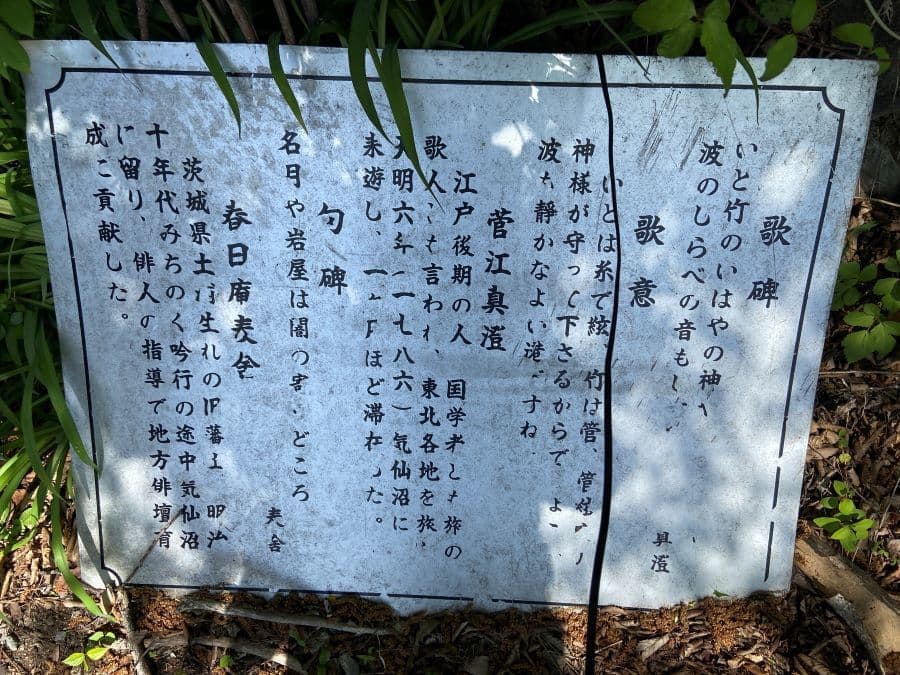 歌碑
いと竹のいはやの神
波のしらべの音も
真澄
歌意
いとは糸で絃 竹は管、管絃
神様が守って下さるからで
波も静かなよい港ですね
菅江真澄
江戸後期の人 国学者とも旅の
歌人とも言われ、東北各地を旅
天明六年(一七八六)気仙沼に
来遊し、ほど滞在した。
句碑
名月や岩屋は闇の害 どころ
夫舎
春日庵夫舎
茨城県土浦生れの旧藩士 明治
十年代みちのく吟行の途中気仙沼
に留り、俳人の指導で地方俳壇育
成に貢献した。